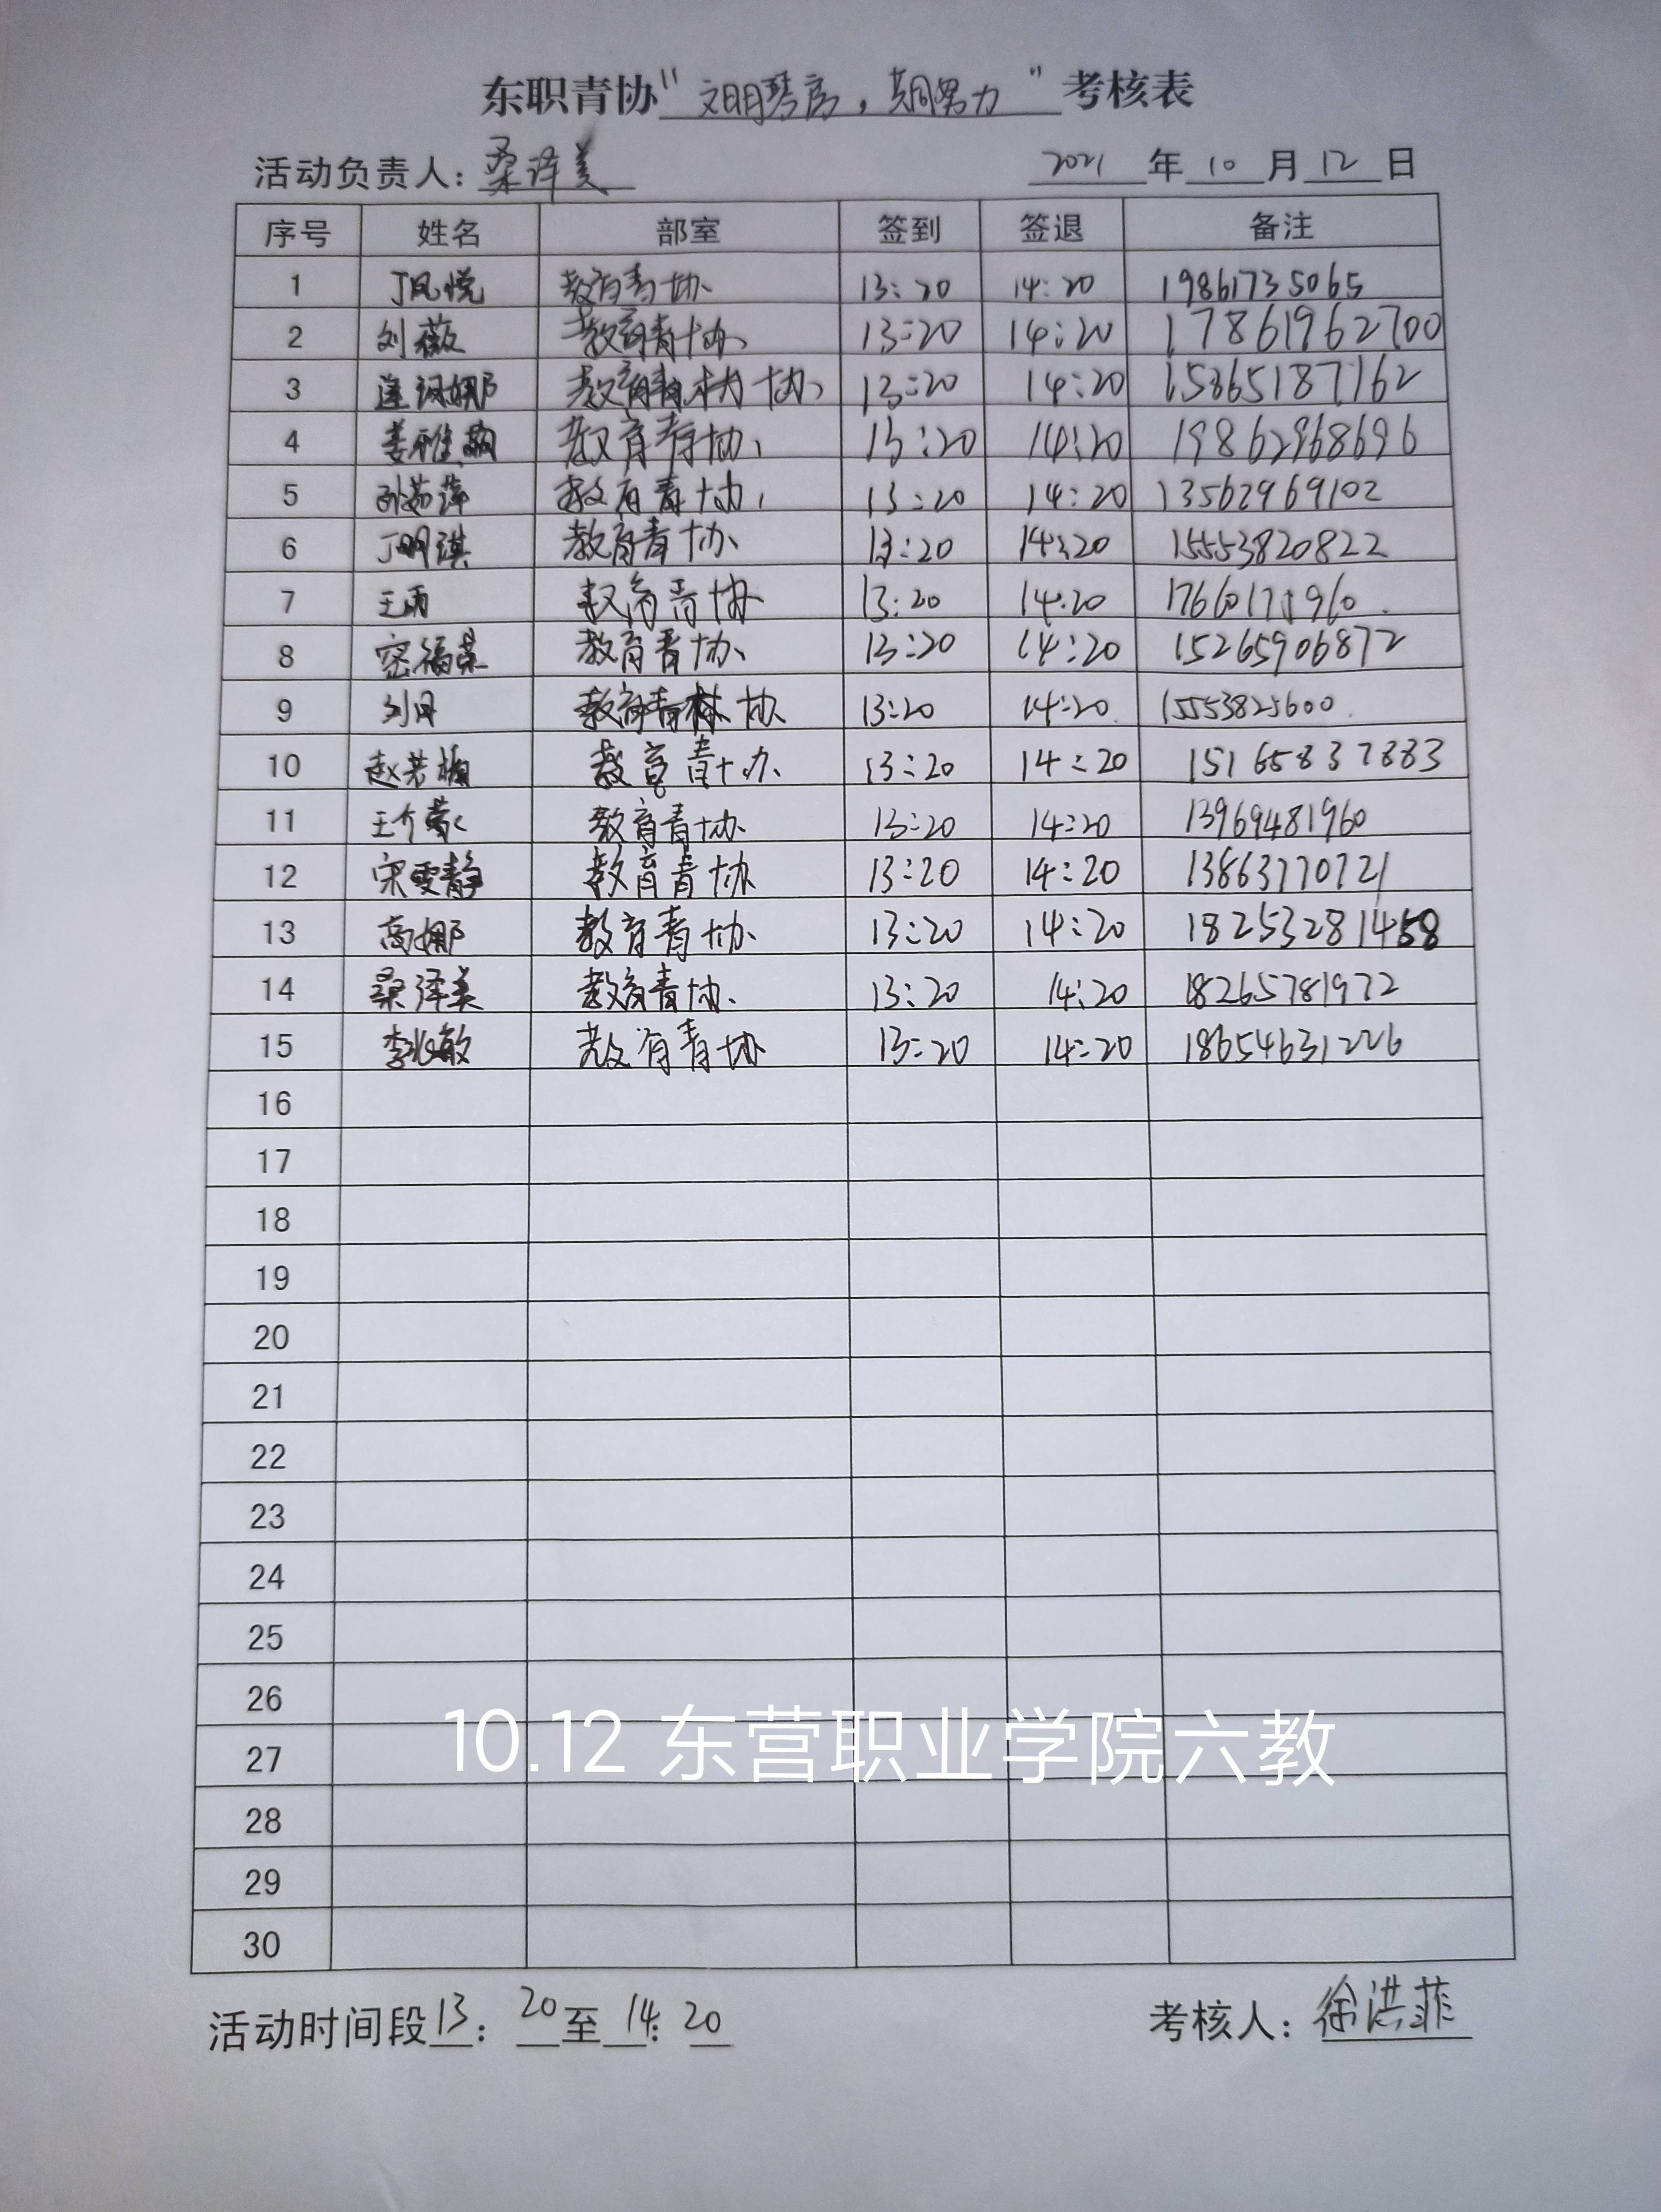 东职青协“文明琴房，共同努力”考核表
活动负责人：桑泽美 2021年10月12日
序号 姓名 部室 签到 签退 备注
1 丁凤悦 教育青协 13:20 14:20 19861735065
2 刘薇 教育青协 13:20 14:20 17861962700
3 教育青协 13:20 14:20 15865187162
4 姜雅 教育青协 13:20 14:20 19862968696
5 孙茹萍 教育青协 13:20 14:20 13562969102
6 丁明琪 教育青协 13:20 14:20 15553820822
7 王雨 教育青协 13:20 14:20
8 密福荣 教育青协 13:20 14:20 15265906872
9 刘丹 教育青协 13:20 14:20 15553825600
10 赵若楠 教育青协 13:20 14:20 15165837883
11 王 教育青协 13:20 14:20 13969481960
12 宋雯静 教育青协 13:20 14:20 13863770721
13 高娜 教育青协 13:20 14:20 18253281458
14 桑泽美 教育青协 13:20 14:20 18265781972
15 李兆敏 教育青协 13:20 14:20 18654631226
16
17
18
19
20
21
22
23
24
25
26
10.12 东营职业学院六教
27
28
29
30
活动时间段13：20至14：20 考核人：徐洪菲